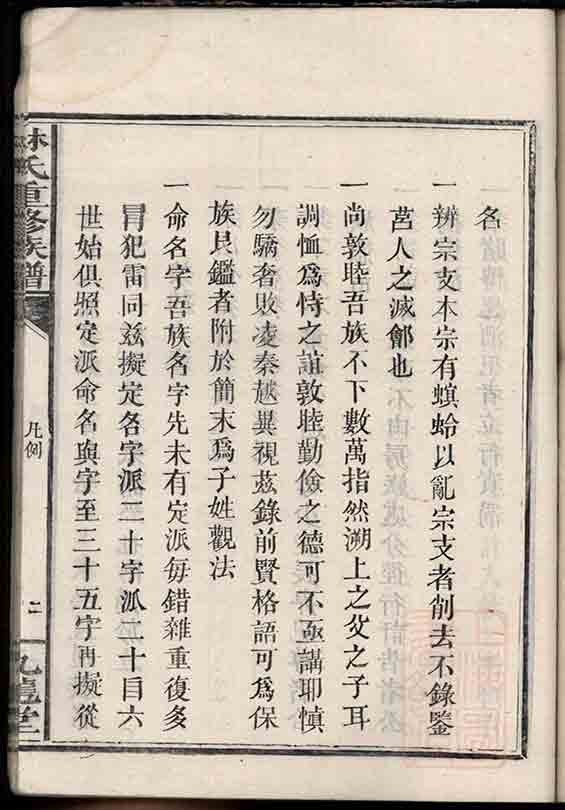 名
一辨宗支本宗有螟蛉以亂宗支者削去不錄鑒
莒人之滅鄫也
一尚敦睦吾族不下數萬指然溯上之父之子耳
調恤為恃之誼敦睦勤儉之德可不亟講耶慎
勿驕奢敗凌秦越異視茲錄前賢格語可為保
族良鑑者附於簡末為子姓觀法
一命名字吾族名字先未有定派每錯雜重復多
冒犯雷同茲擬定名字派二十字派二十目六
世始俱照定派命名與字至三十五字再擬從
林氏重修族譜
凡例
二
九龍堂